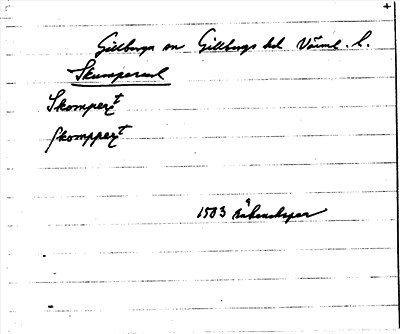 +
Gillberga sn Gillbergs hd Värml. l.
Skumperud
Skompert
skomppert
1503 räkenskaper